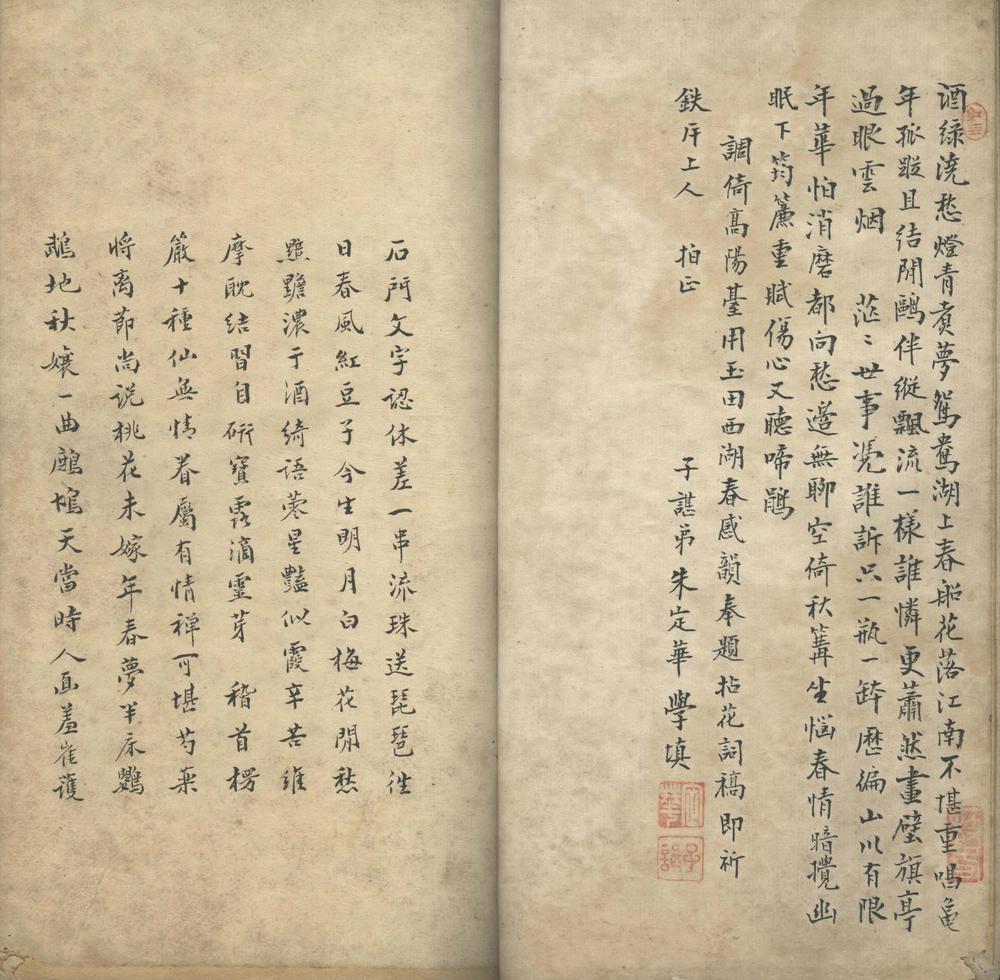 酒綠澆愁燈青煮夢鴛鴦湖上春船花落江南不堪重唱龜
年孤蹤且結閒鷗伴縱飄流一樣誰憐更蕭然畫壁旗亭
過眼雲烟　茫〻世事憑誰訴只一瓶一鉢歷徧山川有限
年華怕消磨都向愁邊無聊空倚秋篝坐惱春情暗攪幽
眠下筠簾重賦傷心又聽啼鵑
調倚高陽臺用玉田西湖春感韻奉題拈花詞稿即祈
鉄厈上人　拍正
子諶弟朱定華學填
石門文字認休差一串流珠送琵琶往
日春風紅豆子今生明月白梅花閒愁
黯黵濃于酒綺語零星豔似霞辛苦維
摩耽結習自研寶露滴靈芽　稽首楞
嚴十種仙無情眷屬有情禪可堪芍藥
將离節尚説桃花未嫁年春夢半床鸚
鵡地秋孃一曲鷓鴣天當時人面羞崔護